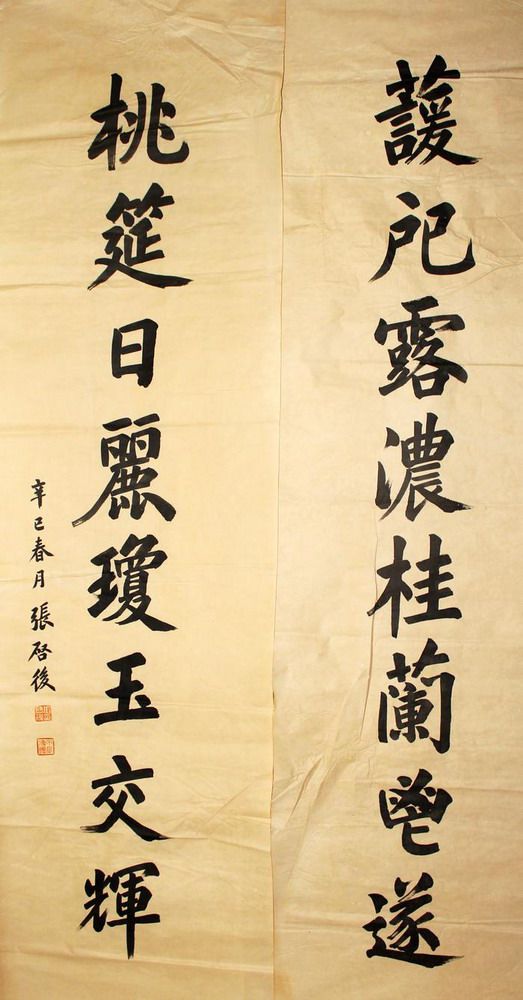 蘐戺露濃桂蘭鬯遂
桃筵日麗瓊玉交輝
辛巳春月 張启後